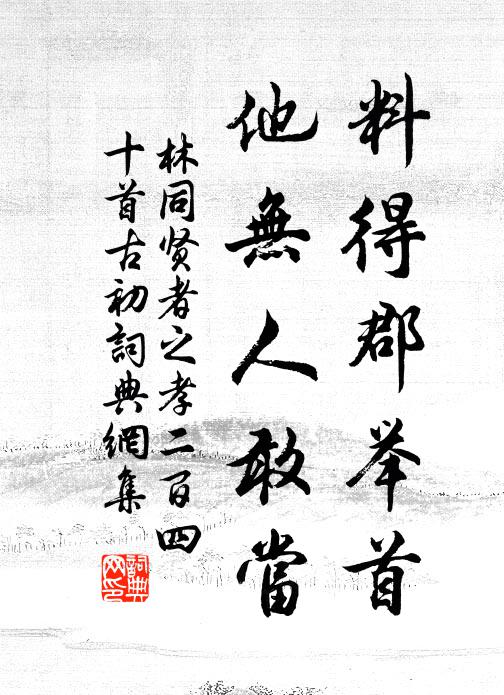 料得郡举首
他無人敢當
林同贤者之孝二百四
十首古初詞典網集
詞典网印